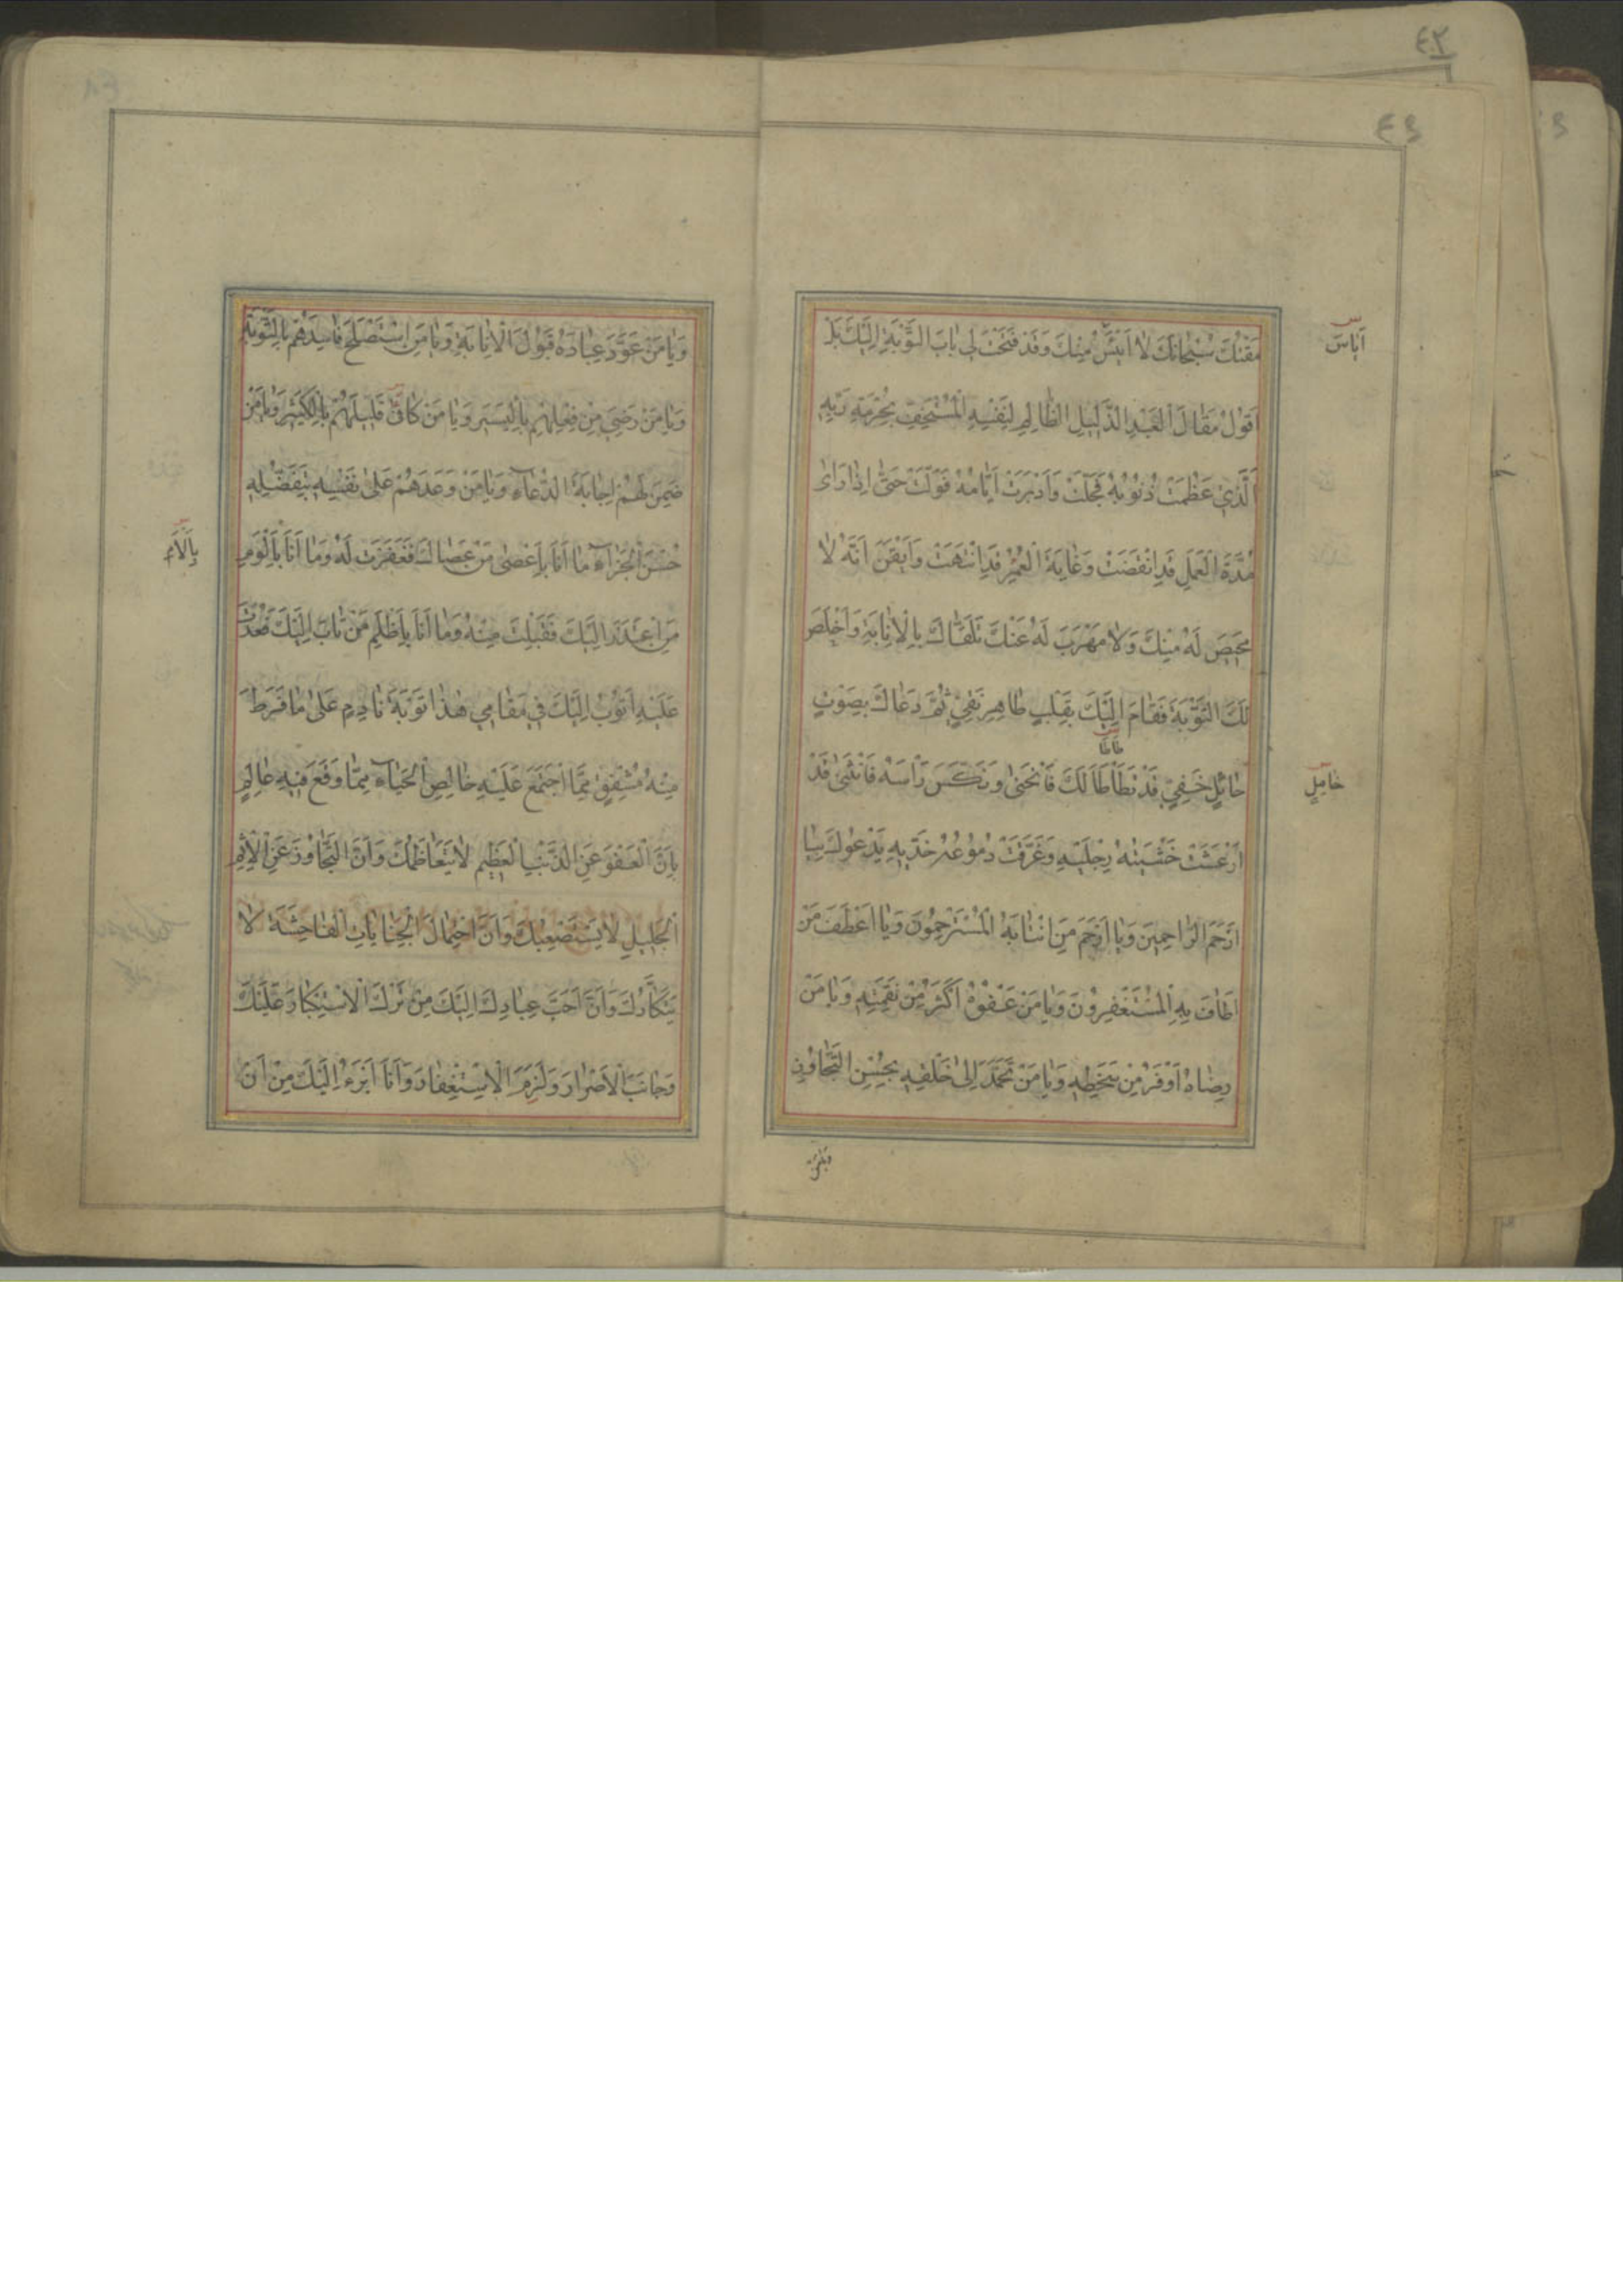 ٤٢
٤٩
مَقْتُكَ سُبْحانَكَ لا اَيْئَسُ مِنْكَ وَقَدْ فَتَحْتَ لي بابَ التَّوْبَةِ اِلَيْكَ بَلْ
اَياَسَ
اَقُولُ مَقالَ الْعَبْدِ الذَّليلِ الظّالِمِ لِنَفْسِهِ الْمُسْتَخِفِّ بِحُرْمَةِ رَبِّهِ
اَلَّذي عَظُمَتْ ذُنُوبُهُ فَجَلَّتْ وَاَدْبَرَتْ اَيّامُهُ فَوَلَّتْ حَتّى اِذا رَاى
مُدَّةَ الْعَمَلِ قَدِ انْقَضَتْ وَغايَةَ الْعُمُرِ قَدِ انْتَهَتْ وَاَيْقَنَ اَنَّهُ لا
مَحيصَ لَهُ مِنْكَ وَلا مَهْرَبَ لَهُ عَنْكَ تَلَقّاكَ بِالاِنابَةِ وَاَخْلَصَ
لَكَ التَّوْبَةَ فَقامَ اِلَيْكَ بِقَلْبٍ طاهِرٍ نَقِيٍّ ثُمَّ دَعاكَ بِصَوْتٍ
طَاطَا
حائِلٍ خَفِيٍّ قَدْ تَطَأْطَأَ لَكَ فَانْحَنى وَنَكَّسَ رَاْسَهُ فَانْثَنى قَدْ
خامِلٍ
اَرْعَشَتْ خَشْيَتُهُ رِجْلَيْهِ وَغَرَّقَتْ دُمُوعُهُ خَدَّيْهِ يَدْعُوكَ بِيا
اَرْحَمَ الرّاحِمينَ وَيا اَرْحَمَ مَنِ انْتابَهُ الْمُسْتَرْحِمُونَ وَيا اَعْطَفَ مَنْ
اَطافَ بِهِ الْمُسْتَغْفِرُونَ وَيا مَنْ عَفْوُهُ اَكْثَرُ مِنْ نَقِمَتِهِ وَيا مَنْ
رِضاهُ اَوْفَرُ مِنْ سَخَطِهِ وَيا مَنْ تَحَمَّدَ اِلى خَلْقِهِ بِحُسْنِ التَّجاوُزِ
وَيا مَنْ
وَيا مَنْ عَوَّدَ عِبادَهُ قَبُولَ الْاِنابَةِ وَيا مَنِ اسْتَصْلَحَ فاسِدَهُمْ بِالتَّوْبَةِ
وَيا مَنْ رَضِيَ مِنْ فِعْلِهِمْ بِالْيَسيرِ وَيا مَنْ كافى قَليلَهُمْ بِالْكَثيرِ وَيا مَنْ
ضَمِنَ لَهُمْ اِجابَةَ الدُّعآءِ وَيا مَنْ وَعَدَهُمْ عَلى نَفْسِهِ بِتَفَضُّلِهِ
حُسْنَ الْجَزآءِ ما اَنَا بِاَعْصى مَنْ عَصاكَ فَغَفَرْتَ لَهُ وَما اَنَا بِاَلْوَمِ
بِاَلْاَمِ
مَنِ اعْتَذَرَ اِلَيْكَ فَقَبِلْتَ مِنْهُ وَما اَنَا بِاَظْلَمِ مَنْ تابَ اِلَيْكَ فَعُدْتَ
عَلَيْهِ اَتُوبُ اِلَيْكَ في مَقامي هذا تَوْبَةَ نادِمٍ عَلى ما فَرَطَ
مِنْهُ مُشْفِقٍ مِمَّا اجْتَمَعَ عَلَيْهِ خالِصِ الْحَيآءِ مِمّا وَقَعَ فيهِ عالِمٍ
بِاَنَّ الْعَفْوَ عَنِ الذَّنْبِ الْعَظيمِ لا يَتَعاظَمُكَ وَاَنَّ التَّجاوُزَ عَنِ الْاِثْمِ
الْجَليلِ لا يَسْتَصْعِبُكَ وَاَنَّ احْتِمالَ الْجِناياتِ الْفاحِشَةِ لا
يَتَكَأَّدُكَ وَاَنَّ اَحَبَّ عِبادِكَ اِلَيْكَ مَنْ تَرَكَ الْاِسْتِكْبارَ عَلَيْكَ
وَجانَبَ الْاِصْرارَ وَلَزِمَ الْاِسْتِغْفارَ وَاَنَا اَبْرَءُ اِلَيْكَ مِنْ اَنْ